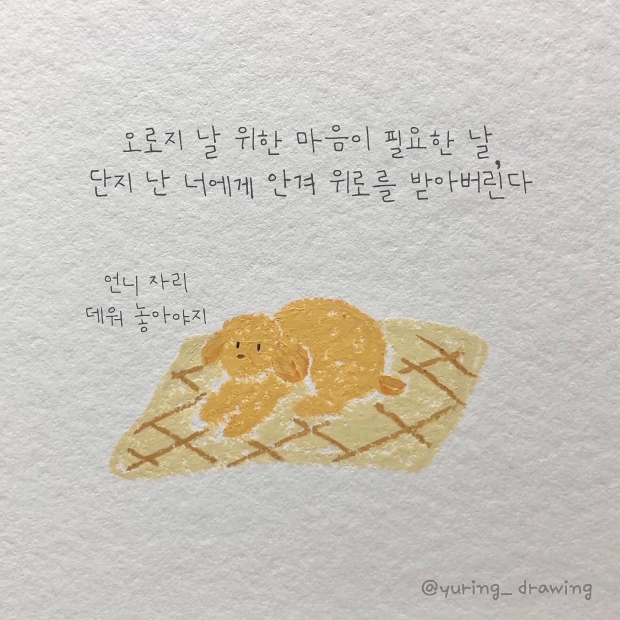 오로지 날 위한 마음이 필요한 날,
단지 난 너에게 안겨 위로를 받아버린다
언니 자리
데워 놓아야지
@yuring_ drawing